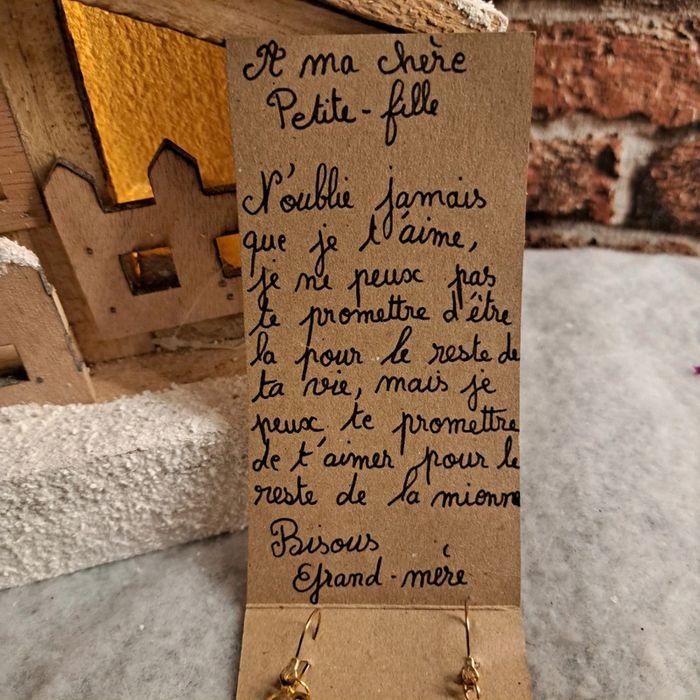 A ma chère
Petite-fille
N'oublie jamais
que je t'aime,
je ne peux pas
te promettre d'être
la pour le reste de
ta vie, mais je
peux te promettre
de t'aimer pour le
reste de la mienne
Bisous
Grand-mère